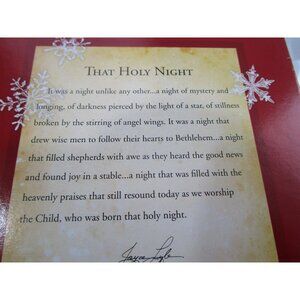 THAT HOLY NIGHT
It was a night unlike any other...a night of mystery and
longing, of darkness pierced by the light of a star, of stillness
broken by the stirring of angel wings. It was a night that
drew wise men to follow their hearts to Bethlehem...a night
that filled shepherds with awe as they heard the good news
and found joy in a stable...a night that was filled with the
heavenly praises that still resound today as we worship
the Child, who was born that holy night.